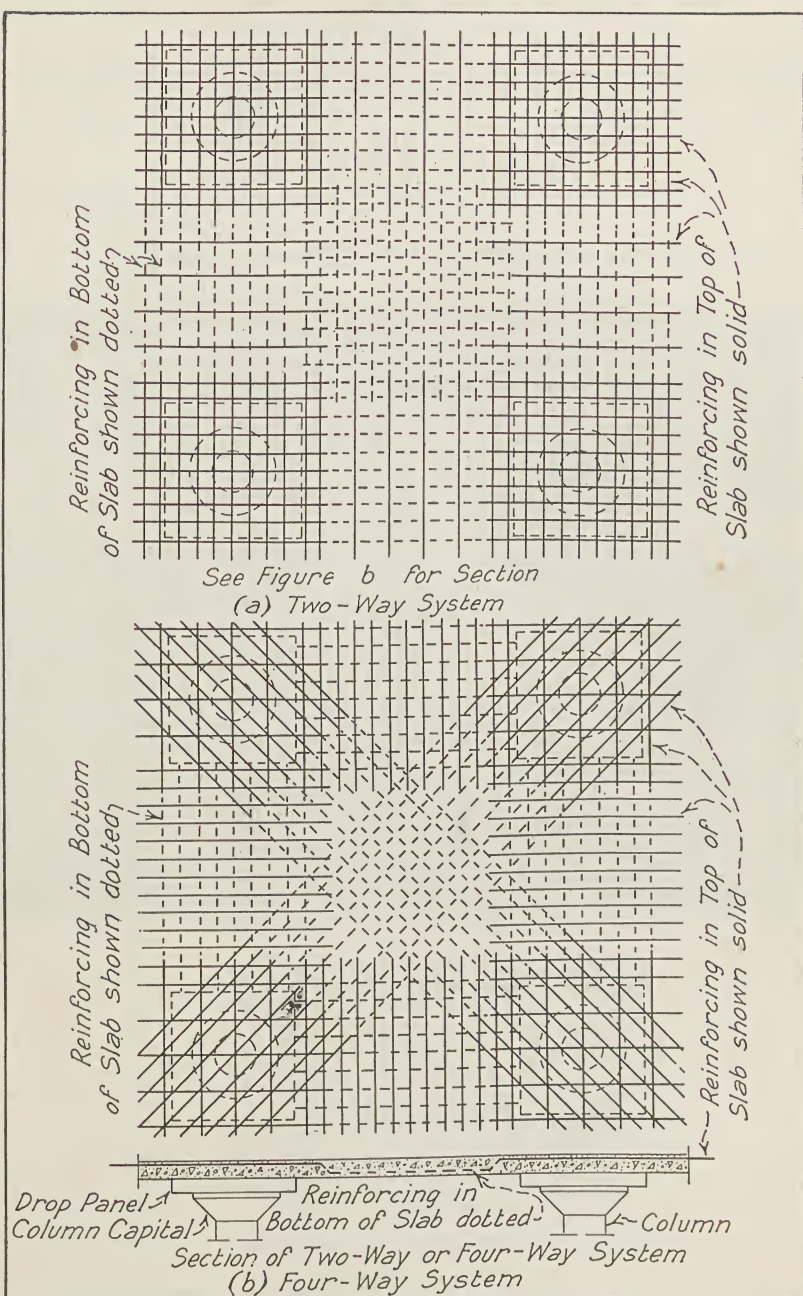 Reinforcing in Bottom
of Slab shown dotted
Reinforcing in Top of
Slab shown solid
See Figure b for Section
(a) Two-Way System
Reinforcing in Bottom
of Slab shown dotted
Reinforcing in Top of
Slab shown solid
Drop Panel
Column Capital
Reinforcing in
Bottom of Slab dotted
Column
Section of Two-Way or Four-Way System
(b) Four-Way System